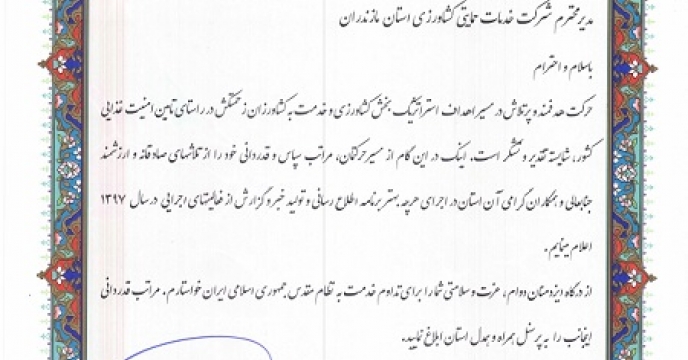 مدیر محترم شرکت خدمات حمایتی کشاورزی استان مازندران
باسلام و احترام
حرکت هدفمند و پرتلاش در مسیر اهداف استراتژیک بخش کشاورزی و خدمت به کشاورزان زحمتکش در راستای تامین امنیت غذایی
کشور، شایسته تقدیر و تشکر است. اینک در این گام از مسیر حرکتمان، مراتب سپاس و قدردانی خود را از تلاشهای صادقانه و ارزشمند
جنابعالی و همکاران گرامی آن استان در اجرای هرچه بهتر برنامه اطلاع رسانی و تولید خبر و گزارش از فعالیتهای اجرایی در سال ۱۳۹۷
اعلام مینمایم.
از درگاه ایزدمنان دوام، عزت و سلامتی شما را برای تداوم خدمت به نظام مقدس جمهوری اسلامی ایران خواستارم. مراتب قدردانی
اینجانب را به پرسنل همراه و همدل استان ابلاغ نمایید.